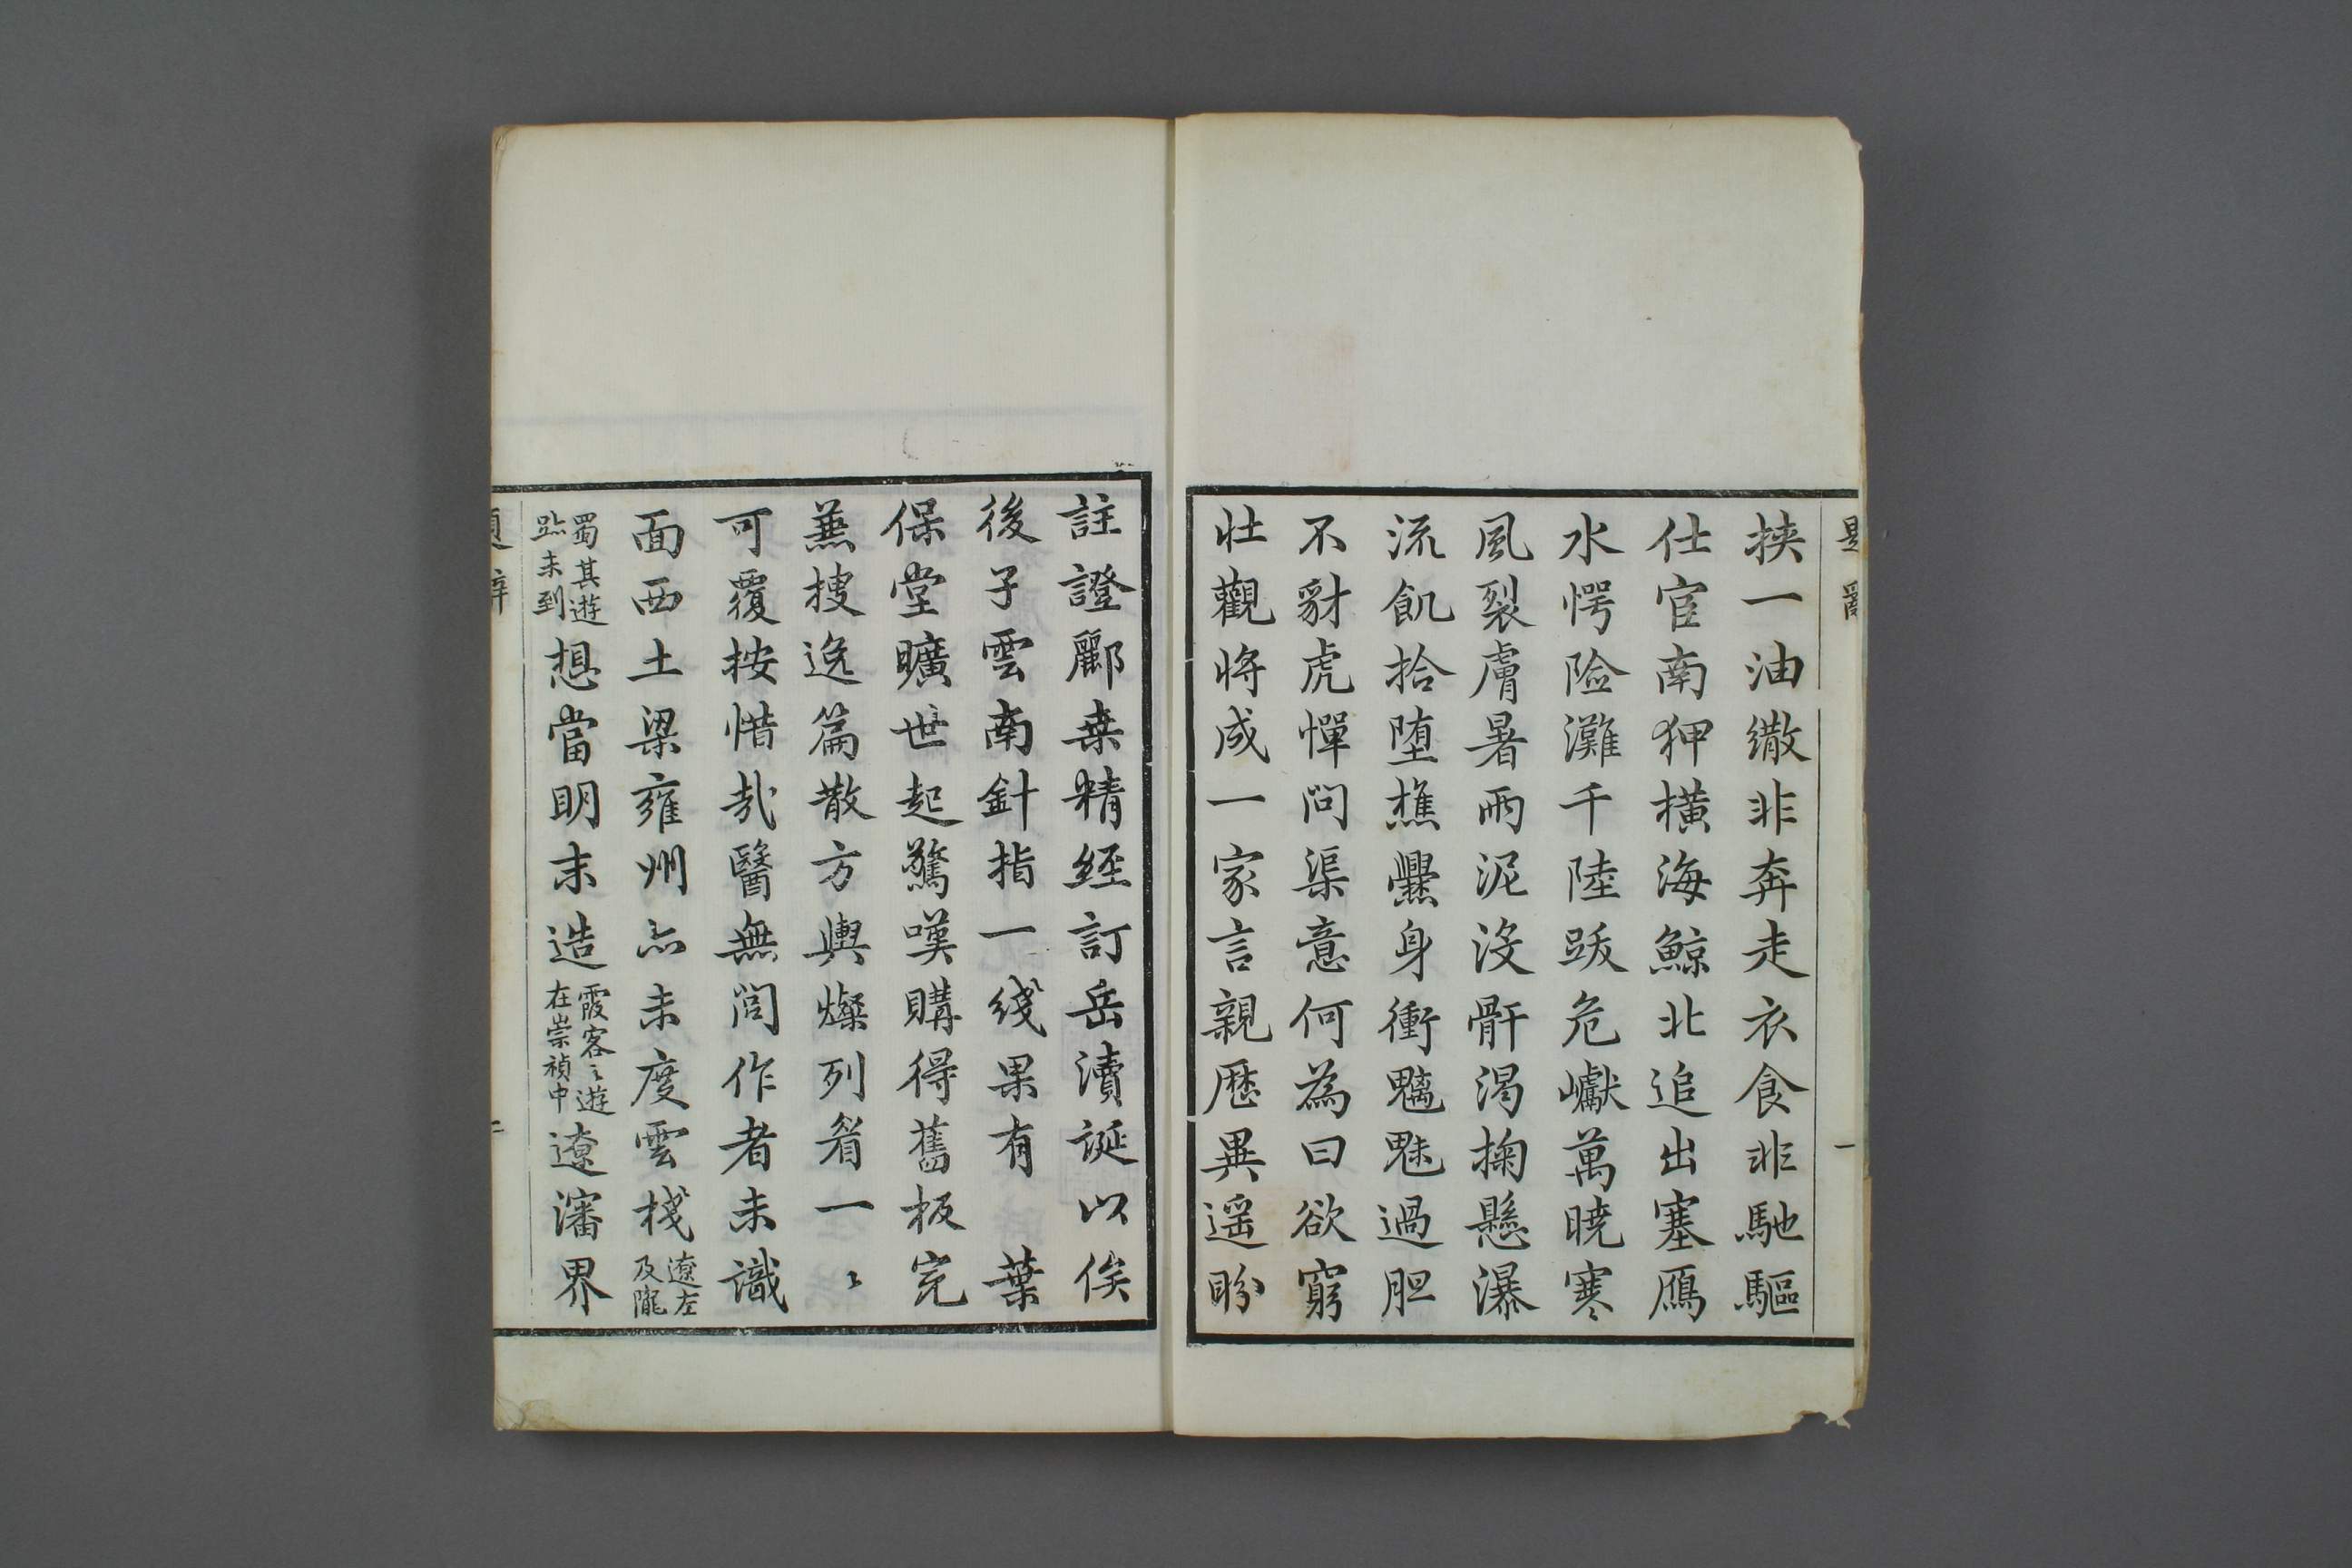 一
挾一油繖非奔走衣食非馳驅
仕宦南狎橫海鯨北追出塞鴈
水愕險灘千陸跋危巘萬曉寒
風裂膚暑雨泥沒骭渴掬懸瀑
流飢拾墮樵爨身衝魑魅過胆
不豺虎憚問渠意何為曰欲窮
壯觀將成一家言親歷異遥盼
註證酈桑精經訂岳瀆誕以俟
後子雲南針指一綫果有 葉
保堂曠世起驚嘆購得舊板完
蕪搜逸篇散方輿燦列眉一〻
可覆按惜哉醫無閭作者未識
面西土梁雍州亦未度雲棧遼左及隴
蜀其遊跡未到想當明末造霞客〻遊在崇禎中遼瀋界